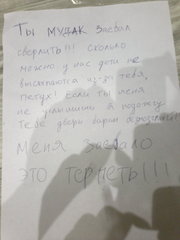 Ты мудак заебал
сверлить!!! сколько
можно у нас дети не
высыпаются из-за тебя,
петух! Если ты меня
не услышишь я подожгу
тебе дверь
Меня заебало
это терпеть!!!